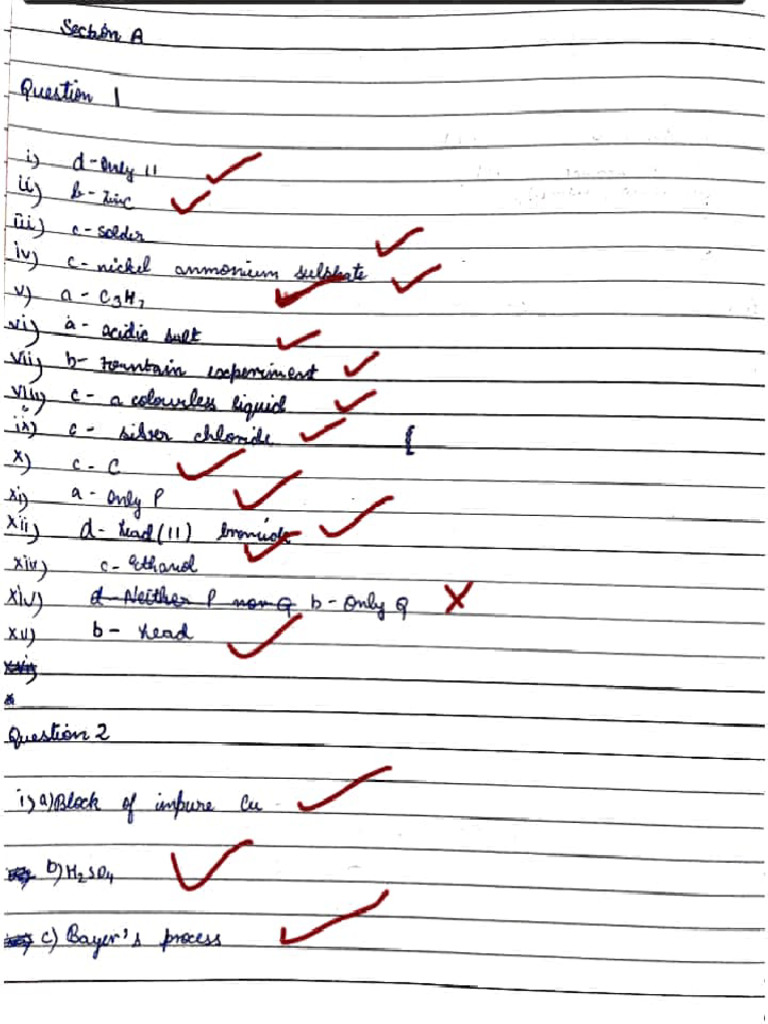 Section A
Question 1
i) d - Only 11
ii) b - Zinc
iii) c - solder
iv) c - nickel ammonium sulphate
v) a - C3H7
vi) a - acidic salt
vii) b - Fountain experiment
viii) c - a colourless liquid
ix) c - silver chloride
x) c - C
xi) a - Only P
xii) d - Lead (11) bromide
xiv) c - Ethanol
xiv) d - Neither P nor Q b - Only Q
xv) b - Lead
Question 2
i) a) Block of impure Cu
b) H2SO4
c) Bayer's process